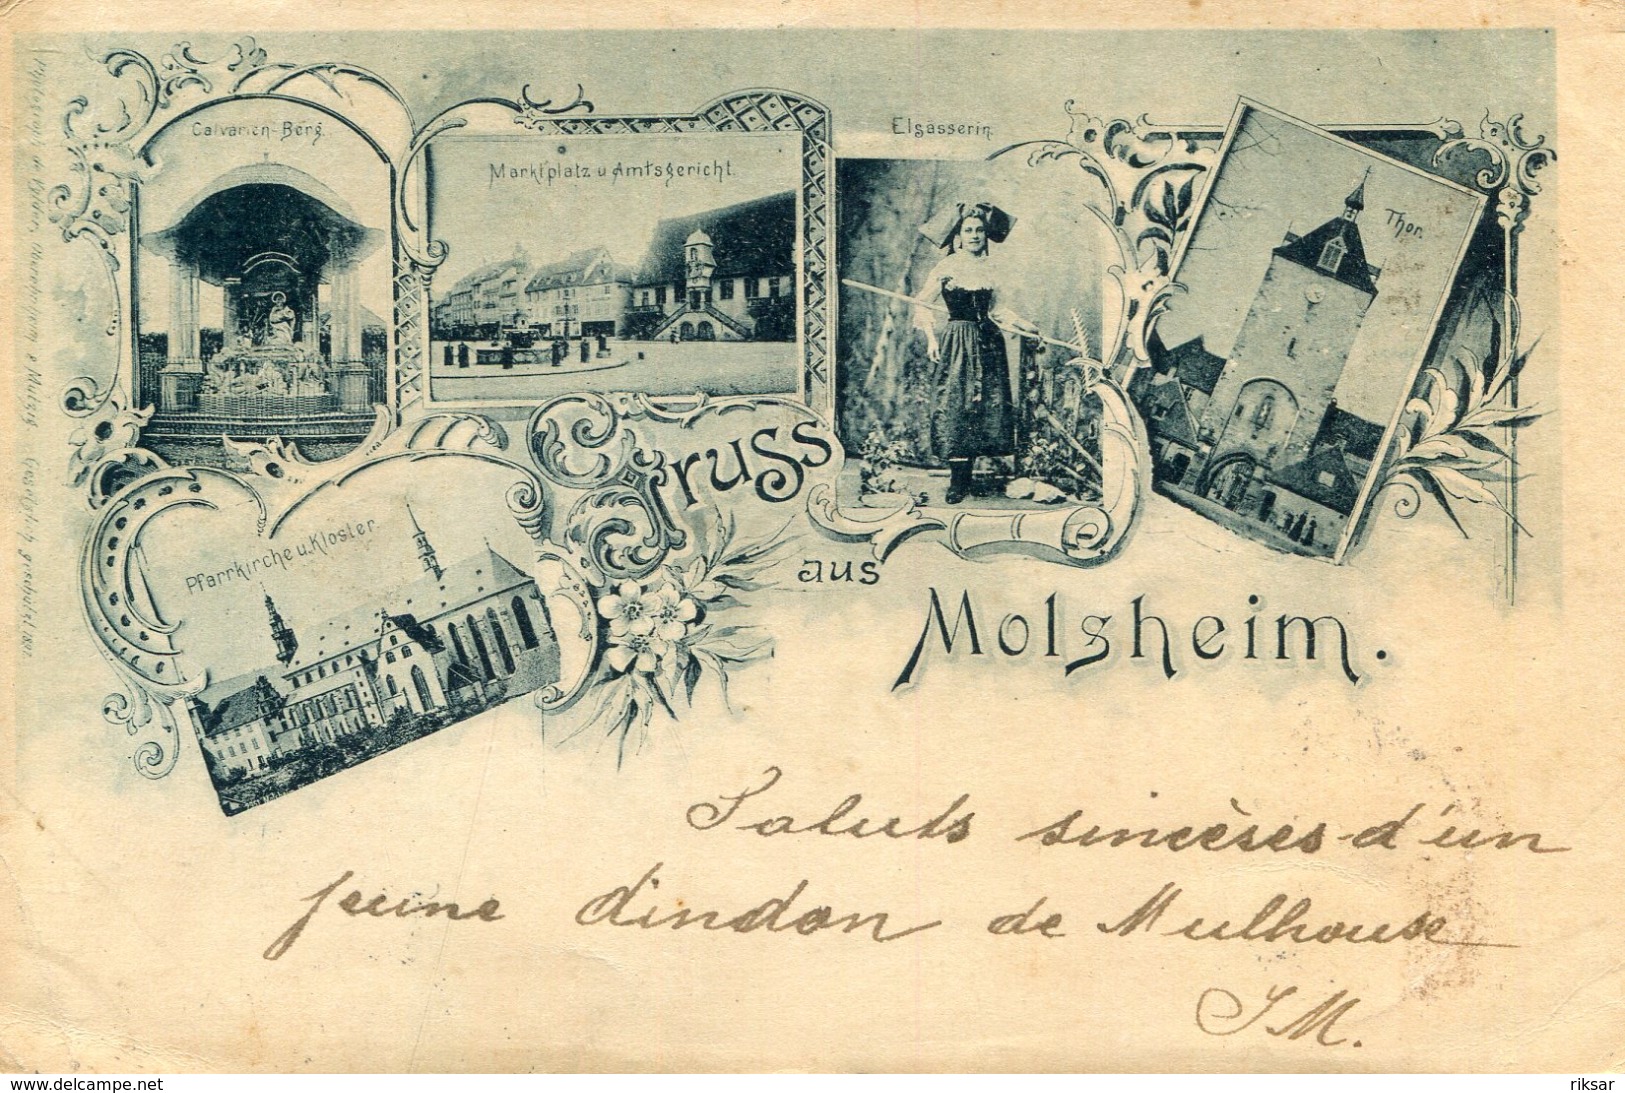 Calvarien-Berg.
Marktplatz u Amtsgericht.
Elsässerin.
Thor.
Pfarrkirche u. Kloster.
Gruss
aus
Molsheim.
Saluts sincères d'un
jeune dindon de Mulhouse
J M.
www.delcampe.net
riksar